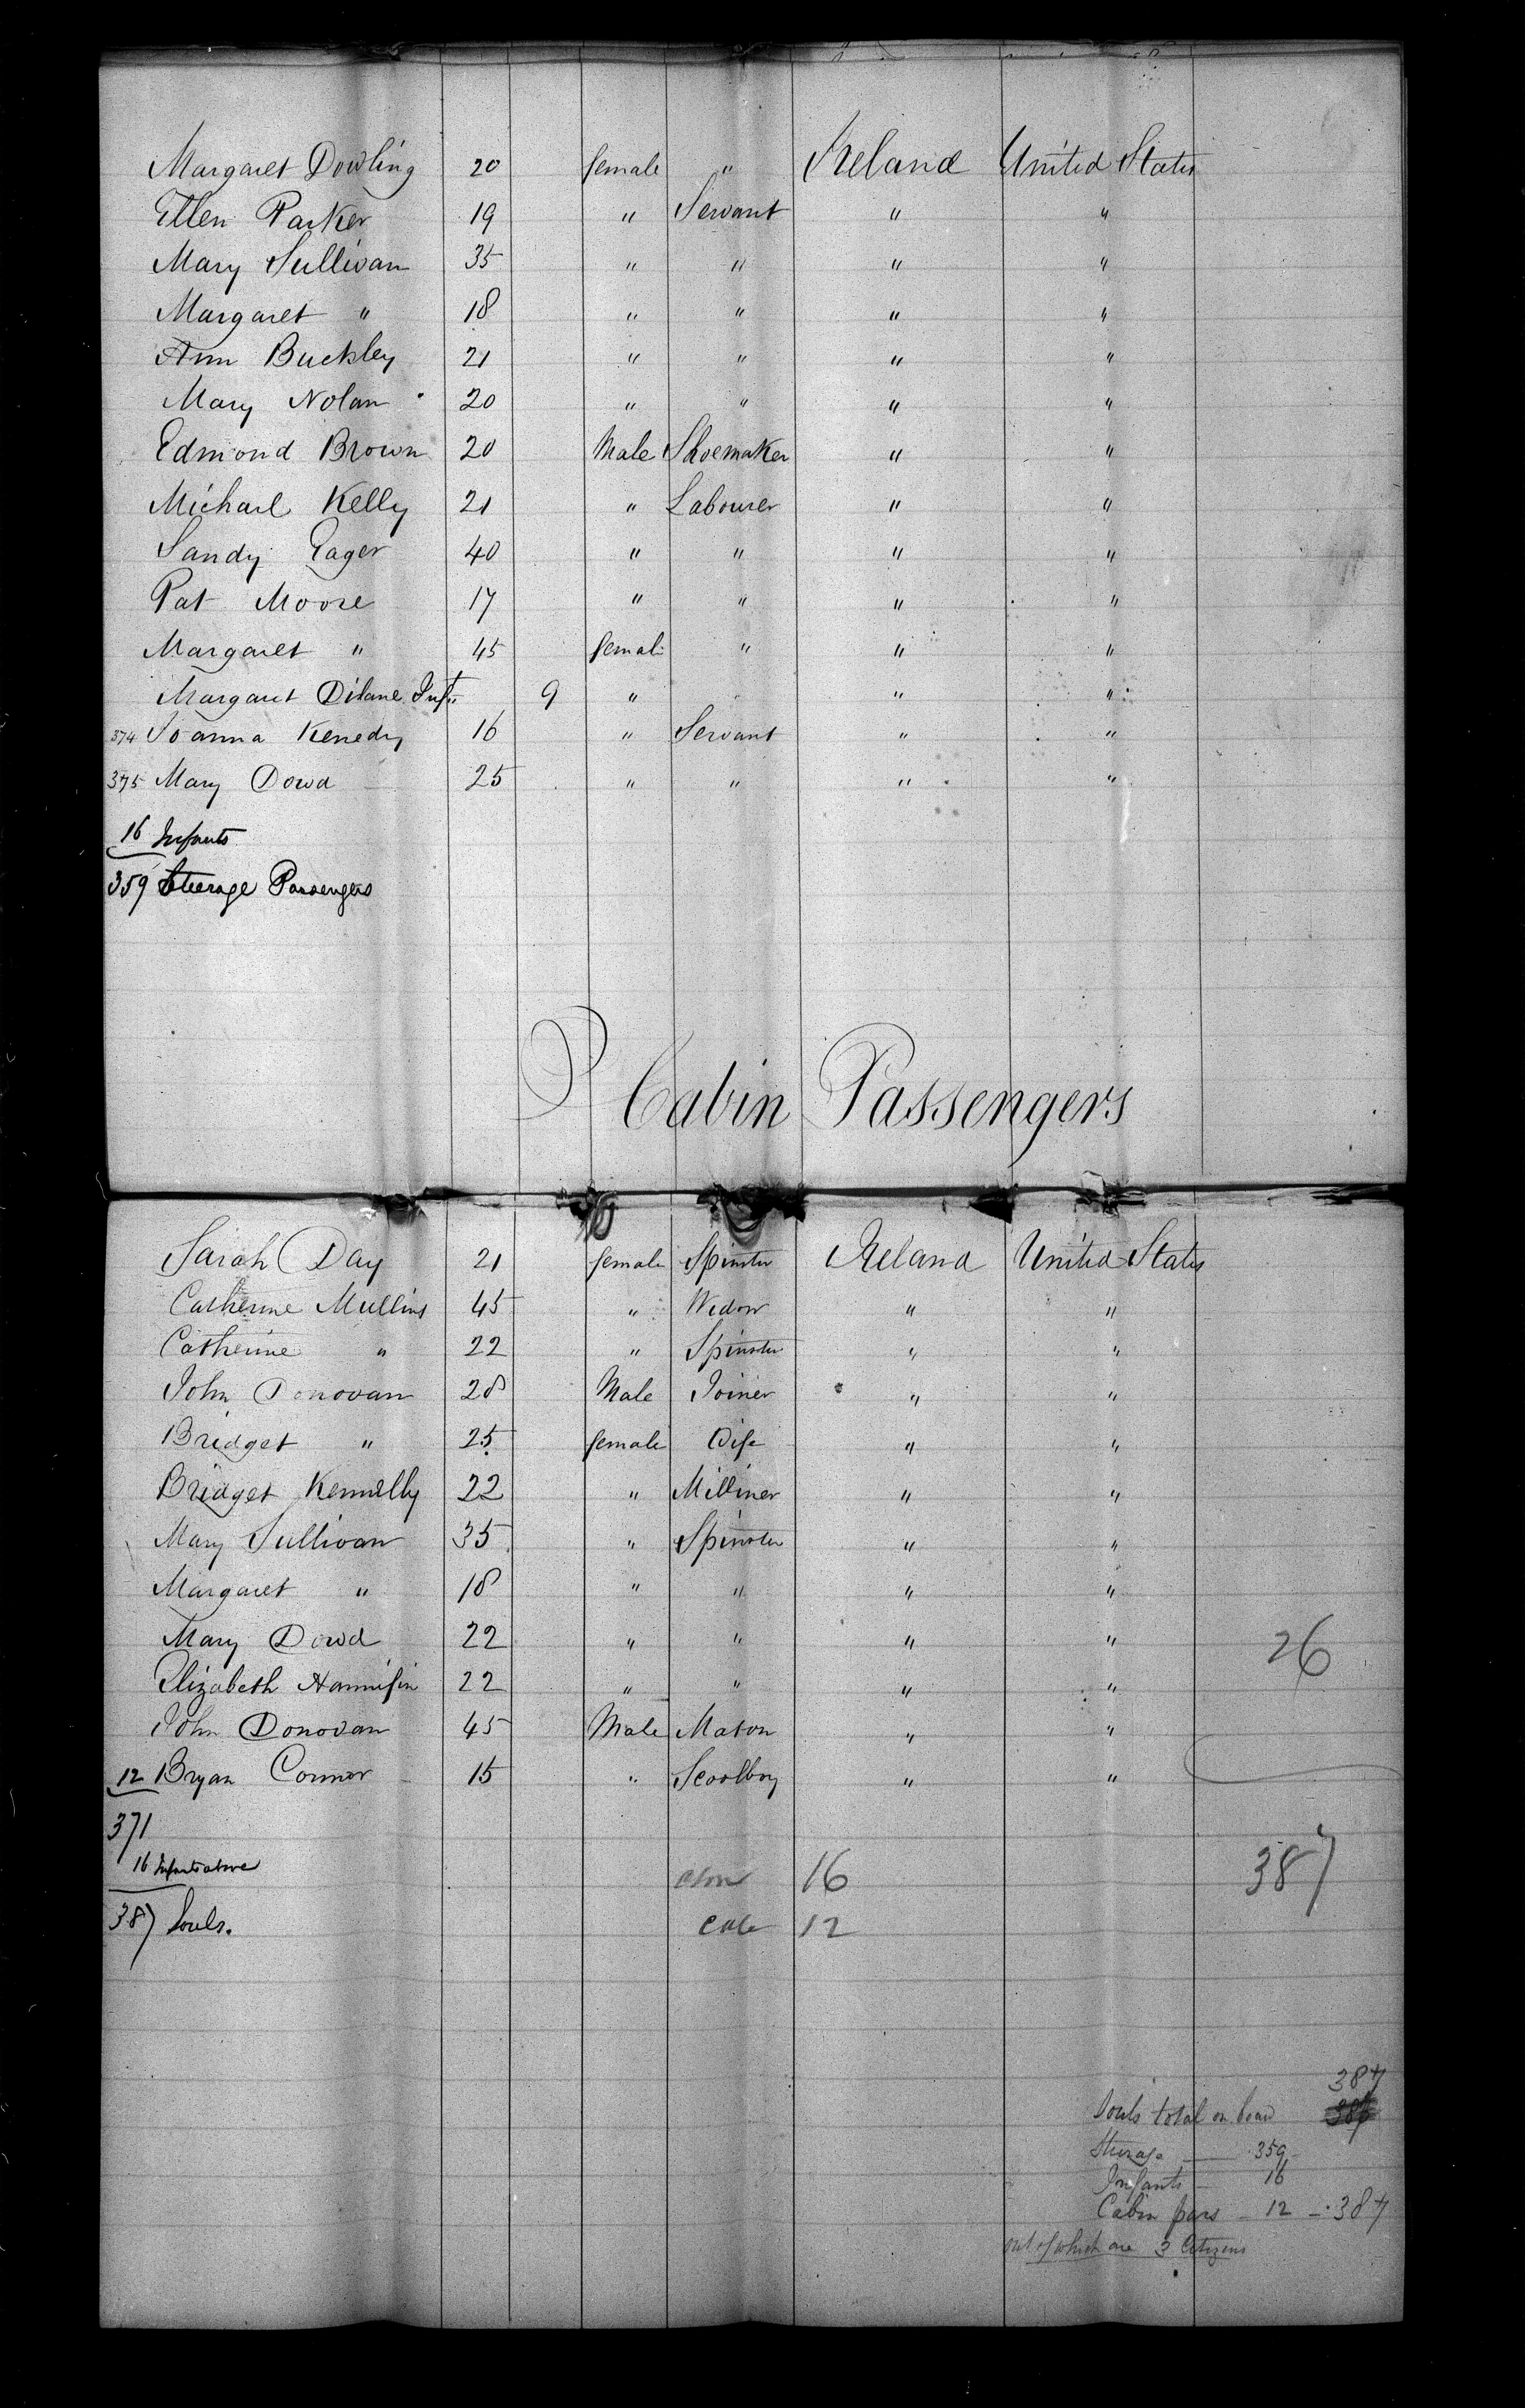 Margaret Dowling 20 female " Ireland United States
Ellen Parker 19 " Servant " "
Mary Sullivan 35 " " " "
Margaret " 18 " " " "
Ann Buckley 21 " " " "
Mary Nolan 20 " " " "
Edmond Brown 20 Male Shoemaker " "
Michael Kelly 21 " Labourer " "
Sandy Eager 40 " " " "
Pat Moore 17 " " " "
Margaret " 45 female " " "
Margaret Dilane Inft 9 " " "
374 Joanna Kenedy 16 " Servant " "
375 Mary Dowd 25 " " " "
16 Infants
359 Steerage Passengers
Cabin Passengers
Sarah Day 21 female Spinster Ireland United States
Catherine Mullins 45 " Widow " "
Catherine " 22 " Spinster " "
John Donovan 28 Male Joiner " "
Bridget " 25 female Wife " "
Bridget Kennelly 22 " Milliner " "
Mary Sullivan 35 " Spinster " "
Margaret " 18 " " " "
Mary Dowd 22 " " " " 26
Elizabeth Hannifin 22 " " " "
John Donovan 45 Male Mason " "
12 Bryan Connor 15 " Scoolboy " "
371
16 Infants above 16 387
387 Souls. 12
387
Souls total on board
Steerage 359
Infants 16
Cabin pass 12 387
out of which are 3 Citizens